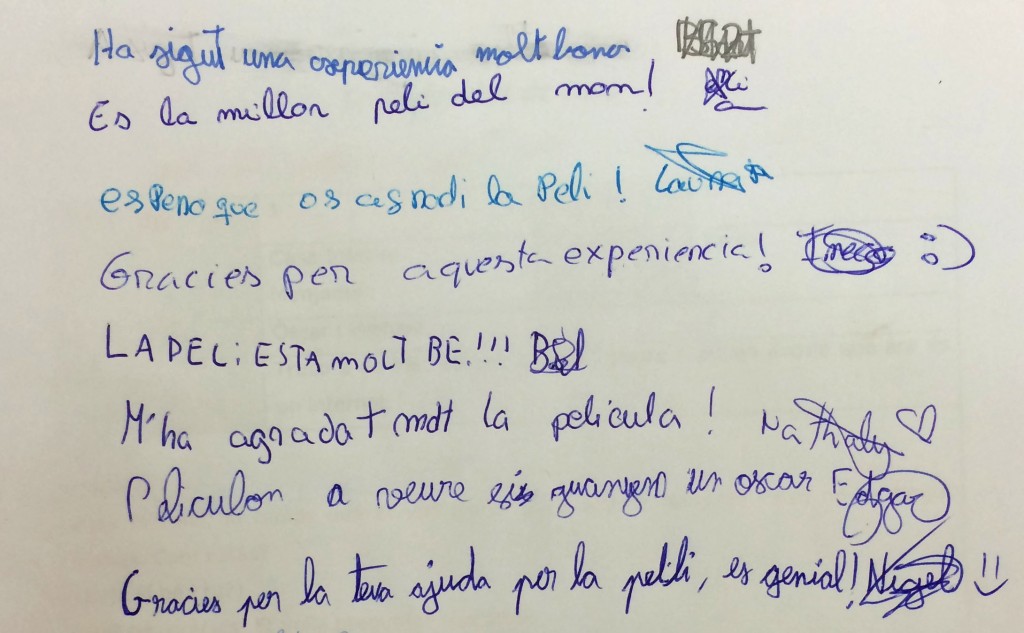 Ha sigut una experiencia molt bona
Es la millor peli del mon!
espero que os agradi la Peli! Laura
Gracies per aquesta experiencia!  :)
LA PELi ESTA MOLT BE.!!!
M'ha agradat molt la pelicula! Nathaly ♡
Peliculon a veure guanyen un oscar Edgar
Gracies per la teva ajuda per la pel·li, es genial! Nigel =)